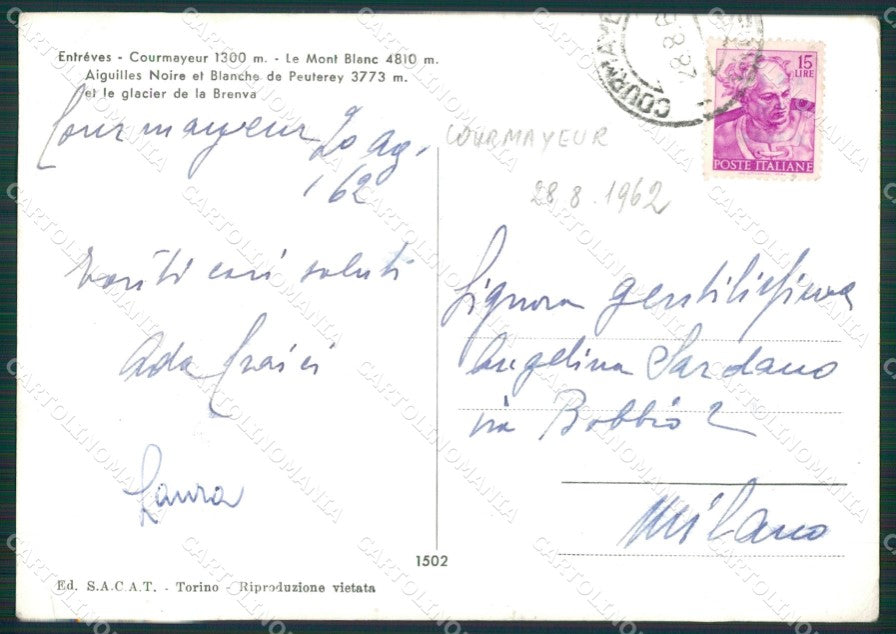 Entréves - Courmayeur 1300 m. - Le Mont Blanc 4810 m.
Aiguilles Noire et Blanche de Peuterey 3773 m.
et le glacier de la Brenva
Courmayeur 20 ag.
'62
cari saluti
Ada
Laura
COURMAYEUR
28.8.1962
15
LIRE
POSTE ITALIANE
COURMAYE
Signora gentilissima
Angelina Sardano
via Bobbio 2
Milano
1502
Ed. S.A.C.A.T. - Torino - Riproduzione vietata
CARTOLINOMANIA